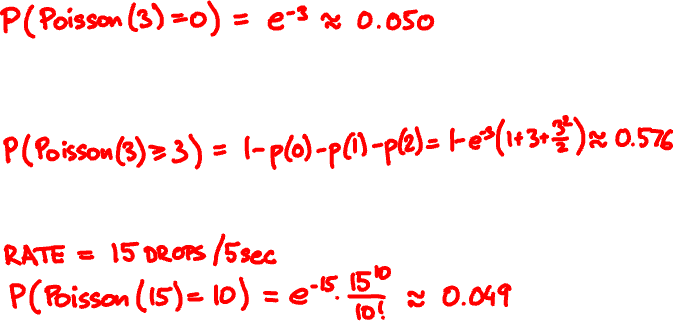 P(Poisson(3)=0) = e⁻³ ≈ 0.050
P(Poisson(3)≥3) = 1-p(0)-p(1)-p(2)= 1-e⁻³(1+3+3²/2)≈0.576
RATE = 15 DROPS/5sec
P(Poisson(15)=10) = e⁻¹⁵·15¹⁰/10! ≈ 0.049